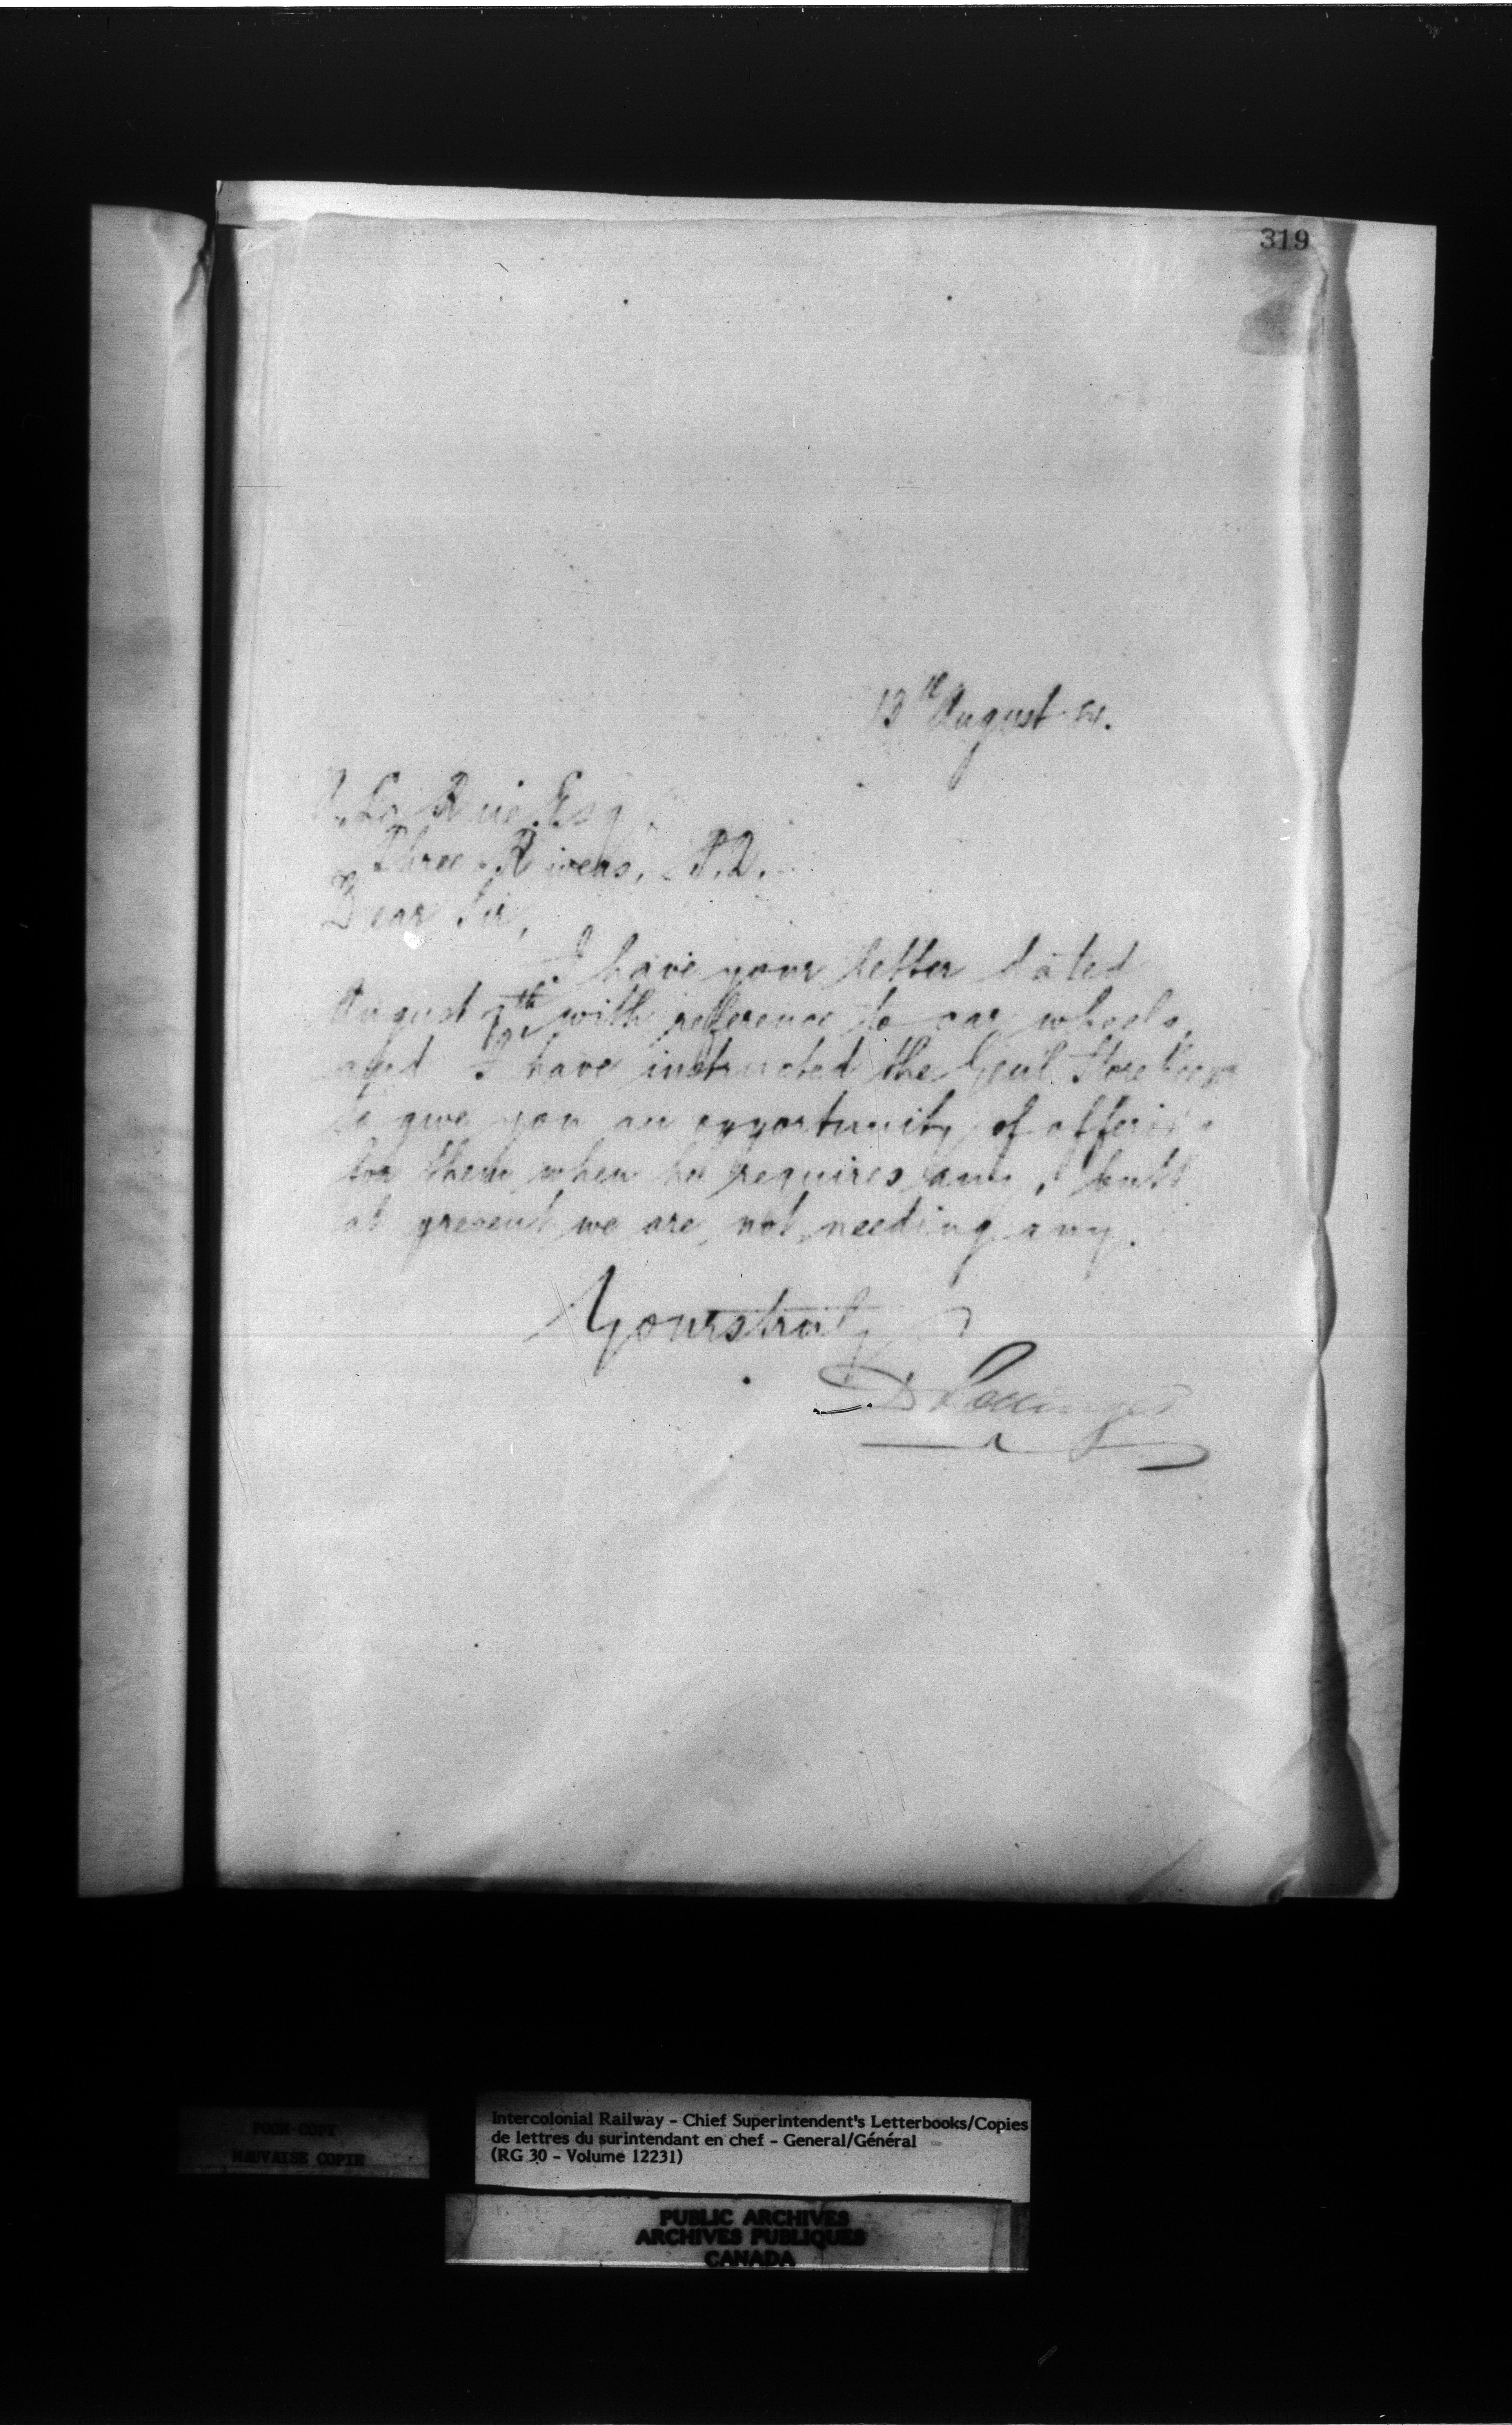 319
13th August 84.
La Rue Esq
Three Rivers, P.Q.
Dear Sir,
I have your letter dated
August 7th with reference to car wheels,
and I have instructed the Genl. Store Keeper
to give you an opportunity of offering
for them when he requires any, but
at present we are not needing any.
Yours truly
D Pottinger
POOR COPY
MAUVAISE COPIE
Intercolonial Railway - Chief Superintendent's Letterbooks/Copies
de lettres du surintendant en chef - General/Général
(RG 30 - Volume 12231)
PUBLIC ARCHIVES
ARCHIVES PUBLIQUES
CANADA